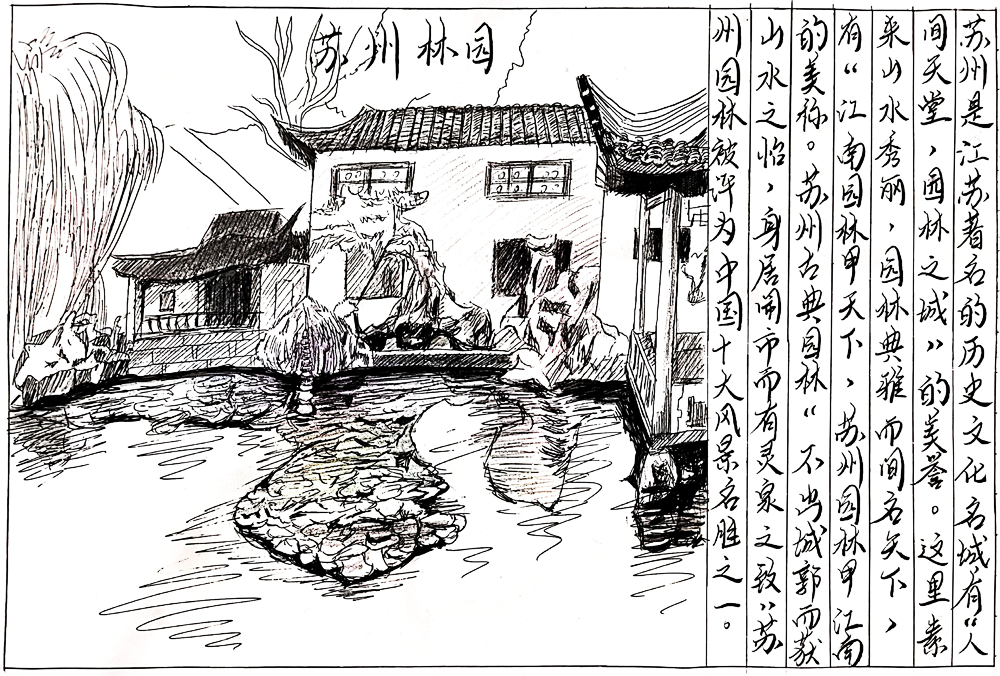 苏州林园
苏州是江苏著名的历史文化名城有“人
间天堂，园林之城”的美誉。这里素
来山水秀丽，园林典雅而闻名天下，
有“江南园林甲天下，苏州园林甲江南
的美称。苏州古典园林“不出城郭而获
山水之怡，身居闹市而有灵泉之致”苏
州园林被评为中国十大风景名胜之一。